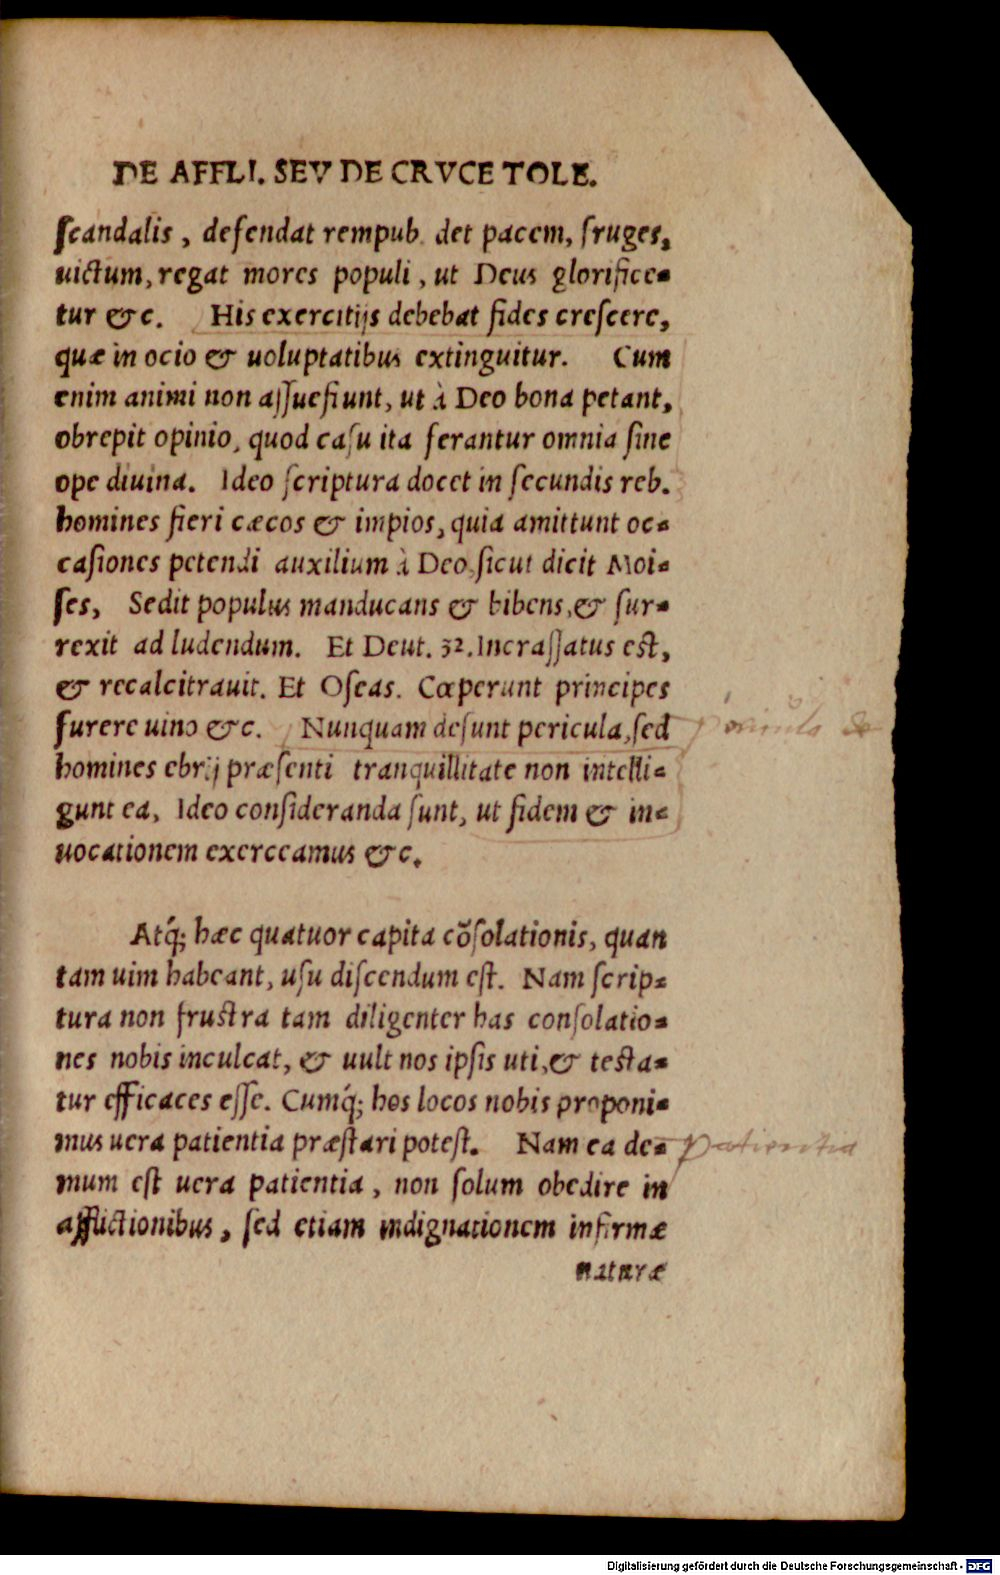 DE AFFLI. SEV DE CRVCE TOLE.
ſcandalis, defendat rempub. det pacem, fruges,
uictum, regat mores populi, ut Deus glorifice-
tur &c. His exercitijs debebat fides creſcere,
quæ in ocio & uoluptatibus extinguitur. Cum
enim animi non aſſuefiunt, ut à Deo bona petant,
obrepit opinio, quod caſu ita ferantur omnia ſine
ope diuina. Ideo ſcriptura docet in ſecundis reb.
homines fieri cæcos & impios, quia amittunt oc-
caſiones petendi auxilium à Deo, ſicut dicit Moi-
ſes, Sedit populus manducans & bibens, & ſur-
rexit ad ludendum. Et Deut. 32. Incraſſatus eſt,
& recalcitrauit. Et Oſeas. Cœperunt principes
furere uino &c. Nunquam deſunt pericula, ſed
homines ebrij præſenti tranquillitate non intelli-
gunt ea, Ideo conſideranda ſunt, ut fidem & in-
uocationem exerceamus &c.
Atq́; hæc quatuor capita cõſolationis, quan
tam uim habeant, uſu diſcendum eſt. Nam ſcrip-
tura non fruſtra tam diligenter has conſolatio-
nes nobis inculcat, & uult nos ipſis uti, & teſta-
tur efficaces eſſe. Cumq́; hos locos nobis proponi-
mus uera patientia præſtari poteſt. Nam ea de-
patientia
mum eſt uera patientia, non ſolum obedire in
afflictionibus, ſed etiam indignationem infirmæ
naturæ
Digitalisierung gefördert durch die Deutsche Forschungsgemeinschaft - DFG